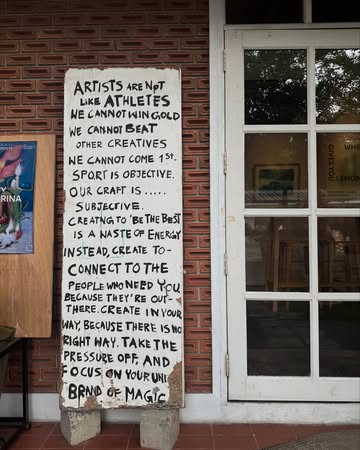 ARTISTS ARE NOT
LIKE ATHLETES
WE CANNOT WIN GOLD
WE CANNOT BEAT
OTHER CREATIVES
WE CANNOT COME 1ST.
SPORT IS OBJECTIVE.
OUR CRAFT IS.....
SUBJECTIVE.
CREATING TO 'BE THE BEST
IS A WASTE OF ENERGY
INSTEAD, CREATE TO-
CONNECT TO THE
PEOPLE WHO NEED YOU
BECAUSE THEY'RE OUT-
THERE. CREATE IN YOUR
WAY, BECAUSE THERE IS NO
RIGHT WAY. TAKE THE
PRESSURE OFF, AND
FOCUS ON YOUR UNI
BRAND OF MAGIC
RINA
WHE
GIVES YOU
LEMON